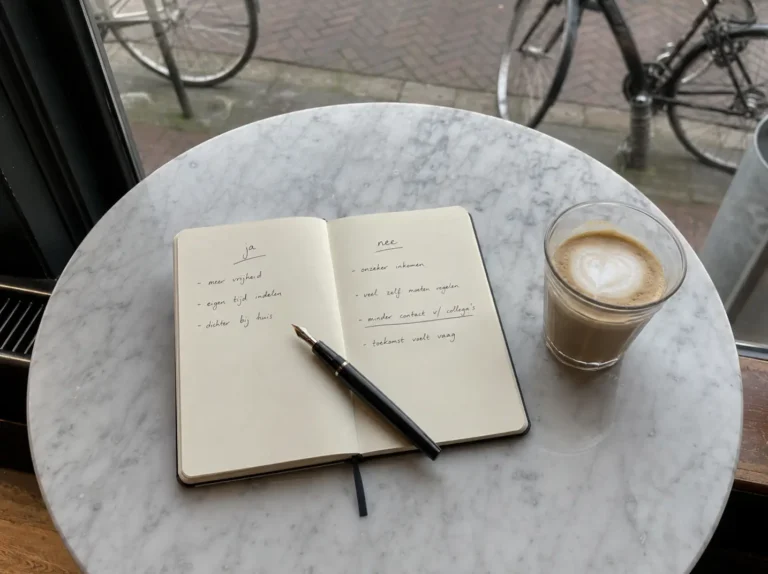 ja
- meer vrijheid
- eigen tijd indelen
- dichter bij huis
nee
- onzeker inkomen
- veel zelf moeten regelen
- minder contact c/ collega's
- toekomst voelt vaag